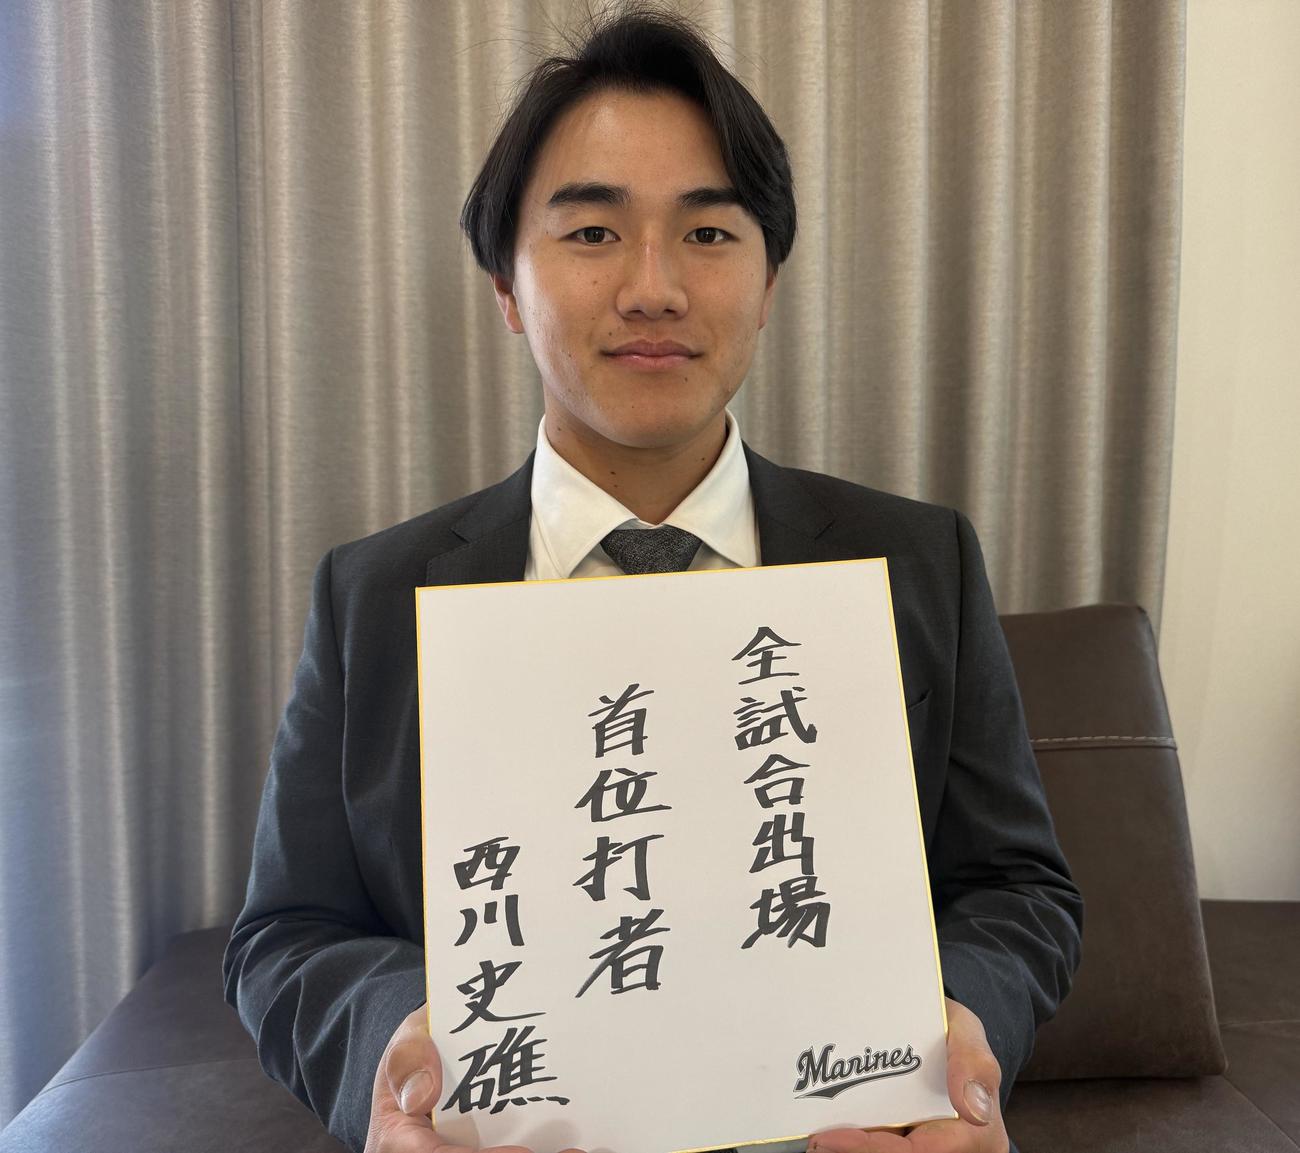 全試合出場
首位打者
西川史礁
Marines